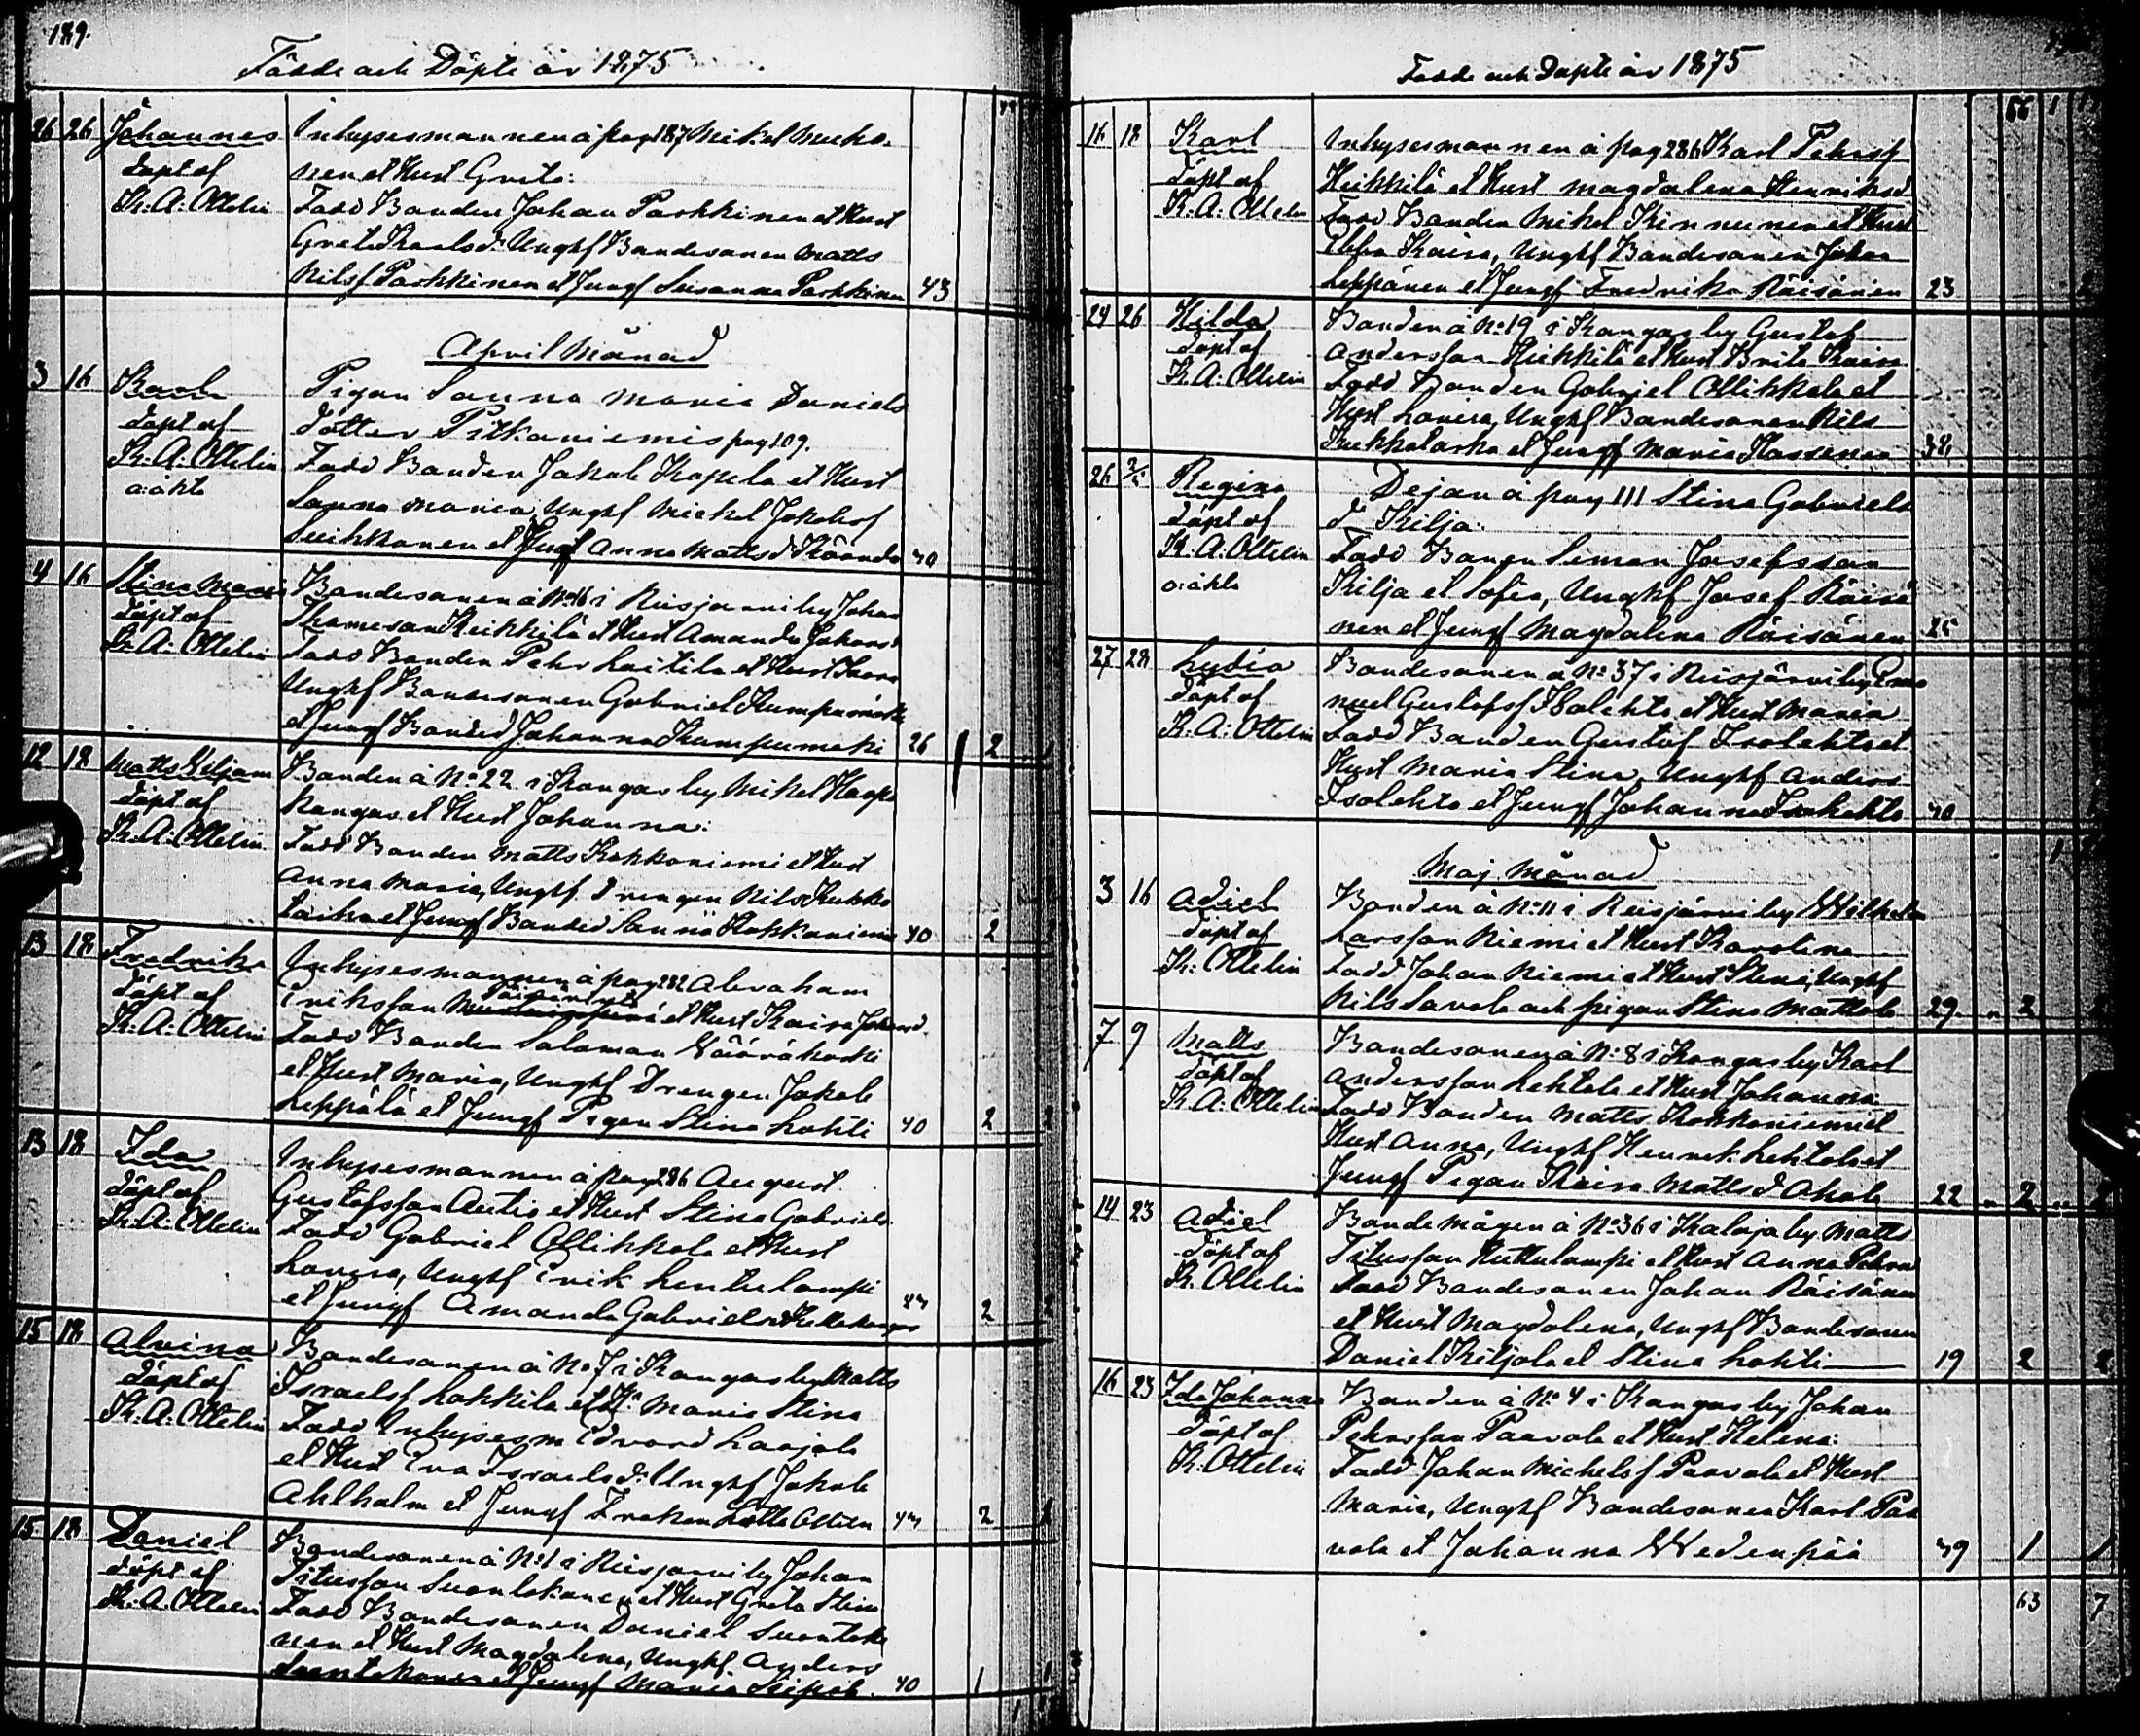 189.
Födde och Döpte år 1875
26 26 Johannes Inhysesmannen å pag 187 Mikel
döpt af nen et Hust Greta:
K. A: Ottelin Fadd Bonden Johan Parkkinen et Hust
Greta Karlsd: Unghf Bondesonen Matts
Nilsf Parkkinen et Jungf Susanna Parkkinen 43
April Månad
3 16 Karl Pigan Sanna Maria Daniels
döpt af dotter Pitkaniemis pag 109.
K. A: Ottelin Fadd Bonden Jakob Kapela et Hust
o:äkta Sanna Maria, Unghf Michel Jakobsf
Leikkonen et Jungf Anna Mattsd 40
4 16 Stina Maria Bondesonen å No 16 i Reisjärvi by Johan
döpt af Thomeson Heikkilä et Hust Amanda Johansd
K. A: Ottelin Fadd Bonden Pehr Laitila et Hust
Unghf Bondesonen Gabriel Kumpumäki
et Jungf Bonded Johanna Kumpumäki 26 1 2
12 18 Matts Viljam Bonden å No: 22 i Kangas by Mikel Haapa
döpt af kangas et Hust Johanna:
K. A. Ottelin Fadd Bonden Matts Kokkoniemi et Hust
Anna Maria, Unghf. Drengen Nils Kukko
et Jungf Bonded Sanna Kokkoniemi 40 2
13 18 Fredrika Inhysesmannen å pag 282 Abraham
döpt af Eriksson et Hust Kaisa Johansd.
K. A: Ottelin Fadd Bonden Salomon Vääräkoski
et Hust Maria, Unghf Drengen Jakob
Leppälä et Jungf Pigan Stina Lahti 40 2
13 18 Ida Inhysesmannen å pag 286 August
döpt af Gustafsson Autio et Hust Stina Gabriels
K. A: Ottelin Fadd Gabriel Ollikkala et Hust
Lovisa, Unghf Erik Lentulampi
et Jungf Amanda Gabrielsd 2
15 18 Alvina Bondesonen å No 7 i Kangas by Matts
döpt af Israelsf Lokkila et H: Maria Stina
K. A. Ottelin Fadd Inhysesm Edvard Laajala
et Hust Eva Israelsd: Unghf Jakob
Ahlholm et Jungf Fröken Lotta Ottelin 2
15 18 Daniel Bondesonen å No: 1 i Reisjarvi by Johan
döpt af Titusson Suontakanen et Hust Greta Stina
K. A. Ottelin Fadd Bondesonen Daniel Suontaka
nen et Hust Magdalena, Unghf Anders
Suontakanen et Jungf Maria 40 1 1
Födde och Döpte år 1875
66 1
16 18 Karl Inhysesmannen å pag 286 Karl Pehrsf
döpt af Heikkilä et Hust Magdalena Henriksd
K. A. Ottelin Fadd Bonden Mikel Kinnunen et Hust
Ebba Kaisa, Unghf Bondesonen Johan
Leppänen et Jungf Fredrika Räisänen 23
24 26 Hilda Bonden å No: 19 i Kangas by Gustaf
döpt af Andersson Heikkilä et Hust Brita Kaisa
K. A: Ottelin Fadd Bonden Gabriel Ollikkala et
Hust Lovisa, Unghf Bondesonen Nils
et Jungf Maria 38
26 2/5 Regina Dejan å pag 111 Stina Gabriels
döpt af d: Kilja:
K. A. Ottelin Fadd Bonen Simon Josefsson
o:äkta Kilja et Sofia, Unghf Josef Räisä
nen et Jungf Magdalena Räisänen 25
27 28 Lydia Bondesonen å No: 37 i Reisjärvi by Ema
döpt af nuel Gustafsf Isolehto et Hust Maria
K. A: Ottelin Fadd Bonden Gustaf Isolehto et
Hust Maria Stina, Unghf Anders
Isolehto et Jungf Johanna Isolehto 40
Maj Månad
3 16 Adiel Bonden å No: 11 i Reisjärvi by Wilhelm
döpt af Larsson Niemi et Hust Karolina
K: Ottelin Fadd Johan Niemi et Hust Stina, Unghf
Nils Savola och pigan Stina Mattala 29. " 2
7 9 Matts Bondesonen å No: 8 i Kangas by Karl
döpt af Andersson Lehtola et Hust Johanna
K. A: Ottelin Fadd Bonden Matts Kokkoniemi et
Hust Anna, Unghf Henrik Lehtola et
Jungf Pigan Kaisa Mattsd Ahola 22 " 2 " 2
14 23 Adiel Bondemågen å No: 36 i Kalaja by Matts
döpt af Titusson Huttulampi et Hust Anna Pehrsd
K. Ottelin Fadd Bondesonen Johan Räisänen
et Hust Magdalena, Unghf Bondesonen
Daniel Kiljala et Stina Lahti 19 2 2
16 23 Ida Johanna Bonden å No: 4 i Kangas by Johan
döpt af Pehrsson Paavola et Hust Helena:
K. Ottelin Fadd Johan Michelsf Paavola et Hust
Maria, Unghf Bondesonen Karl Paa
vola et Johanna Wedenpää 39 1 1
63 7